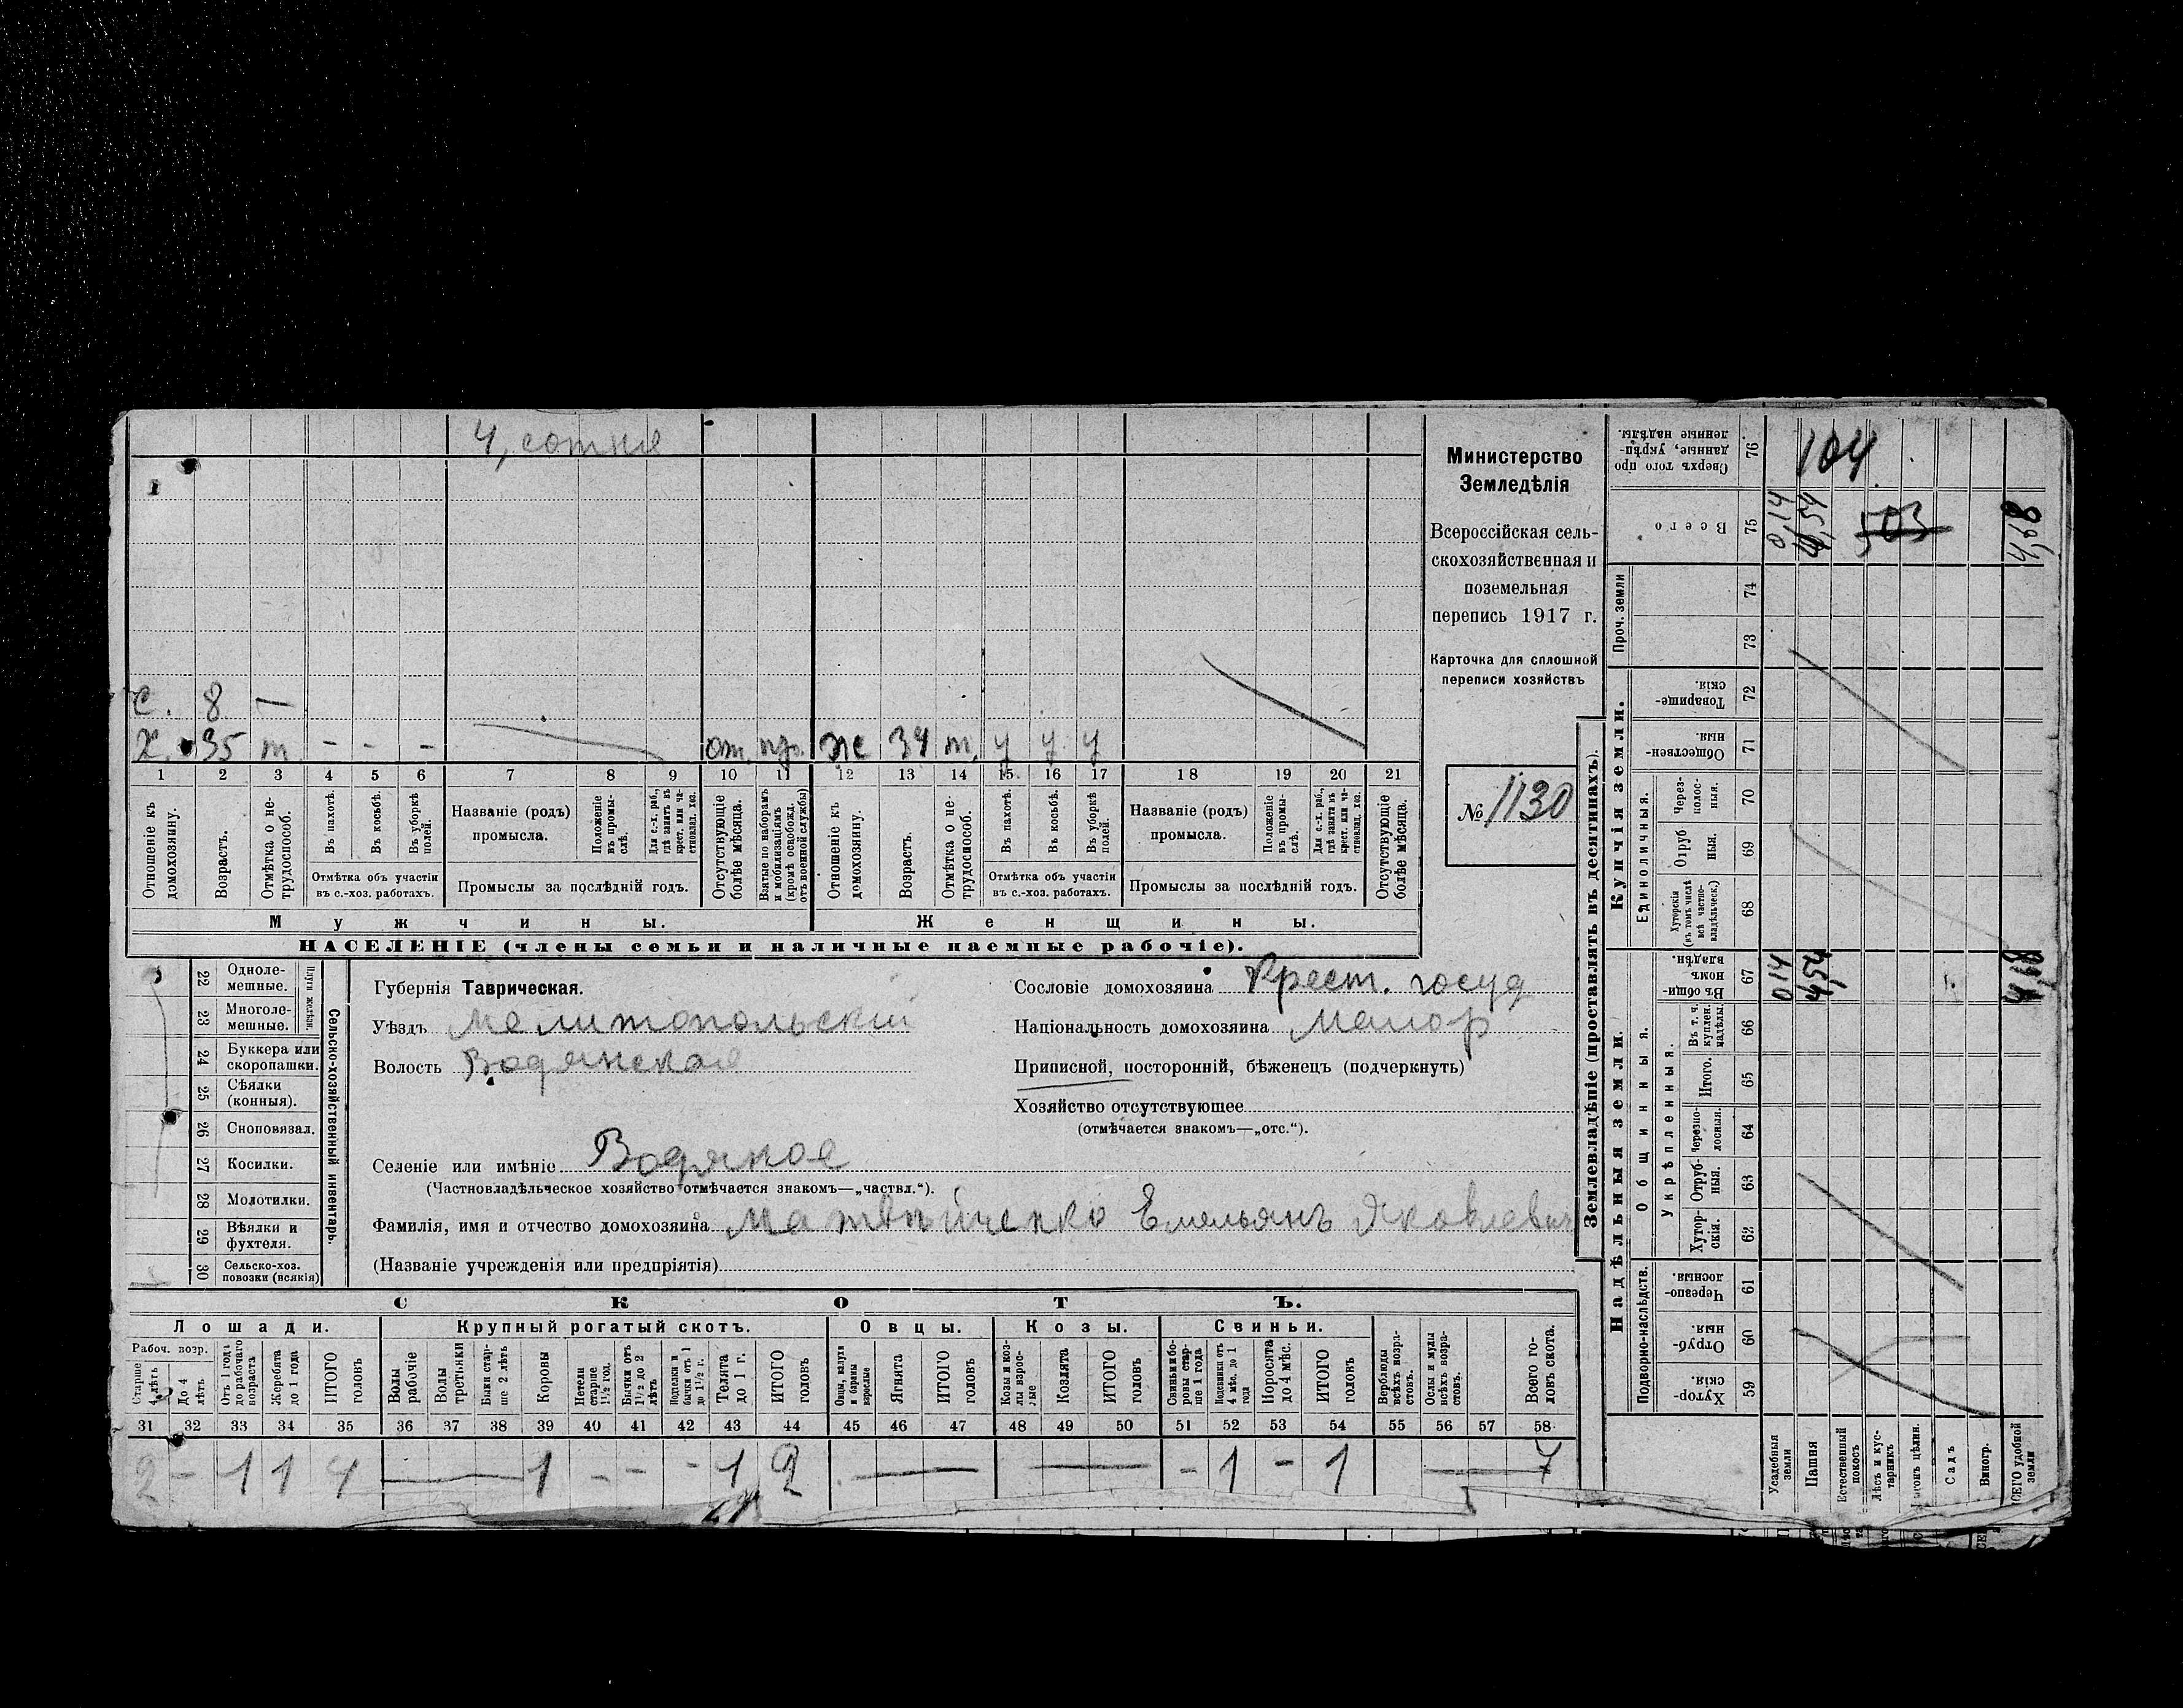 4, сотня
с. 8 —
х. 35 т — — — от. пр. же 34 т. у у у
1 2 3 4 5 6 7 8 9 10 11 12 13 14 15 16 17 18 19 20 21
Отношеніе къ домохозяину.
Возрастъ.
Отмѣтка о не-трудоспособ.
Въ пахотѣ.
Въ косьбѣ.
Въ уборкѣ полей.
Отмѣтка объ участіи
въ с.-хоз. работахъ.
Названіе (родъ)
промысла.
Положеніе въ промы-слѣ.
Для с.-х. раб., гдѣ занятъ въ крест. или ча-стновлад. хоз.
Промыслы за послѣдній годъ.
Отсутствующіе болѣе мѣсяца.
Взятые по наборамъ и мобилизаціямъ (кромѣ освобожд. отъ военной службы)
Отношеніе къ домохозяину.
Возрастъ.
Отмѣтка о не-трудоспособ.
Въ пахотѣ.
Въ косьбѣ.
Въ уборкѣ полей.
Отмѣтка объ участіи
въ с.-хоз. работахъ.
Названіе (родъ)
промысла.
Положеніе въ промы-слѣ.
Для с.-х. раб., гдѣ занятъ въ крест. или ча-стновлад. хоз.
Промыслы за послѣдній годъ.
Отсутствующіе болѣе мѣсяца.
Мужчины. Женщины.
НАСЕЛЕНІЕ (члены семьи и наличные наемные рабочіе).
Министерство
Земледѣлія
Всероссійская сель-
скохозяйственная и
поземельная
перепись 1917 г.
Карточка для сплошной
переписи хозяйствъ
№ 1130
Сельско-хозяйственный инвентарь.
Плуги желѣзн.
22 Одноле-мешные.
23 Многоле-мешные.
24 Буккера или скоропашки.
25 Сѣялки (конныя).
26 Сноповязал.
27 Косилки.
28 Молотилки.
29 Вѣялки и фухтеля.
30 Сельско-хоз. повозки (всякія)
Губернія Таврическая.
Уѣздъ Мелитопольскій
Волость Водянская
Сословіе домохозяина Крест. госуд
Національность домохозяина Малор
Приписной, посторонній, бѣженецъ (подчеркнуть)
Хозяйство отсутствующее
(отмѣчается знакомъ—„отс.“).
Селеніе или имѣніе Водяное
(Частновладѣльческое хозяйство отмѣчается знакомъ—„частвл.“).
Фамилія, имя и отчество домохозяина Матвѣйченко Емельянъ Яковлевич
(Названіе учрежденія или предпріятія)
СКОТЪ.
Лошади. Крупный рогатый скотъ. Овцы. Козы. Свиньи.
Рабоч. возр.
Старше 4 лѣтъ
До 4 лѣтъ
Отъ 1 года до рабочаго возраста
Жеребята до 1 года
ИТОГО головъ
Волы рабочіе
Волы третьяки
Быки стар-ше 2 лѣтъ
Коровы
Нетели старше 1½ год.
Бычки отъ 1½ до 2 лѣтъ
Подтелки и бычки отъ 1 до 1½ г.
Телята до 1 г.
ИТОГО головъ
Овцы, валухи и бараны взрослые
Ягнята
ИТОГО головъ
Козы и коз-лы взрос-лые
Козлята
ИТОГО головъ
Свиньи и бо-ровы стар-ше 1 года
Подсвинки отъ 4 мѣс. до 1 года
Поросята до 4 мѣс.
ИТОГО головъ
Верблюды всѣхъ возра-стовъ.
Ослы и мулы всѣхъ возра-стовъ.
Всего го-ловъ скота.
31 32 33 34 35 36 37 38 39 40 41 42 43 44 45 46 47 48 49 50 51 52 53 54 55 56 57 58
2 — 1 1 4 — 1 — — — 1 2 — — — 1 — 1 — 7
Землевладѣніе (проставлять въ десятинахъ).
Надѣльныя земли. Купчія земли. Проч. земли
Подворно-наслѣдств. Общинныя. Укрѣпленныя. Единоличныя.
59 Хутор-скія.
60 Отруб-ныя.
61 Черезпо-лосныя.
62 Хутор-скія.
63 Отруб-ныя.
64 Черезпо-лосныя.
65 Итого.
66 Въ т. ч. куплен. надѣлы.
67 Въ общи-номъ владѣн.
68 Хуторскія (въ томъ числѣ всѣ частно-владѣльческ.)
69 Отруб ныя.
70 Через-полос-ныя.
71 Обществен-ныя.
72 Товарище-скія.
73
74
75 Всего
76 Сверхъ того про данные, укрѣп-ленные надѣлы.
Усадебныя земли
Пашня
Естественный покосъ
Лѣсъ и кус-тарникъ
Выгонъ цѣлин.
Садъ
Виногр.
ВСЕГО удобной земли
0,14 4,54 4,68
0,14 4,54 503 4,68
104